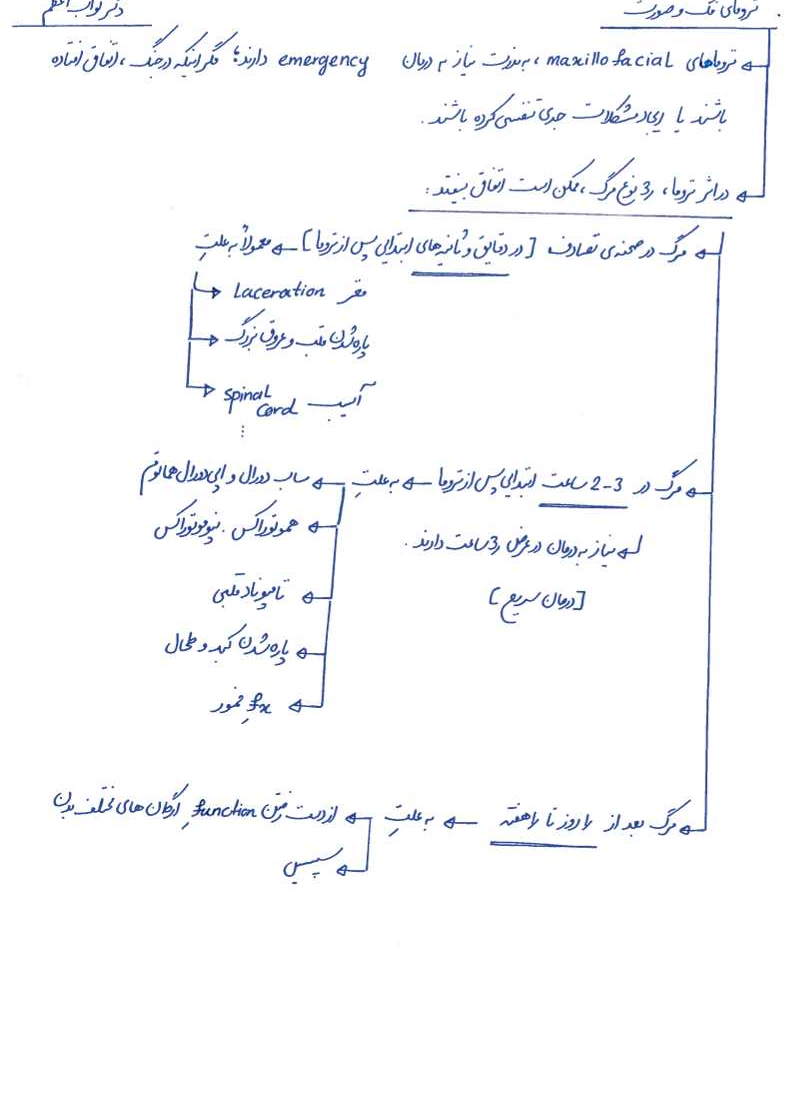 تروماهای فک و صورت
دکتر نواب اعظم
تروماهای maxillofacial، به ندرت نیاز به درمان emergency دارند؛ مگر اینکه در جنگ، اتفاق افتاده
باشند یا ایجاد مشکلات جدی تنفسی کرده باشند.
در اثر تروما، 3 نوع مرگ، ممکن است اتفاق بیفتد:
مرگ در صحنه‌ی تصادف [در دقایق و ثانیه‌های ابتدایی پس از تروما] ← معمولاً به علتِ
Laceration مغز
پاره شدن قلب و عروق بزرگ
آسیب spinal cord
⋮
مرگ در 2-3 ساعت ابتدایی پس از تروما ← به علتِ ← ساب دورال و اپی دورال هماتوم
هموتوراکس. نیوموتوراکس
نیاز به درمان در عرض 3 ساعت دارند.
[درمان سریع]
تامپوناد قلبی
پاره شدن کبد و طحال
fx فمور
مرگ بعد از روز تا هفته ← به علتِ ← از دست رفتن function ارگان های مختلف بدن
سپسیس